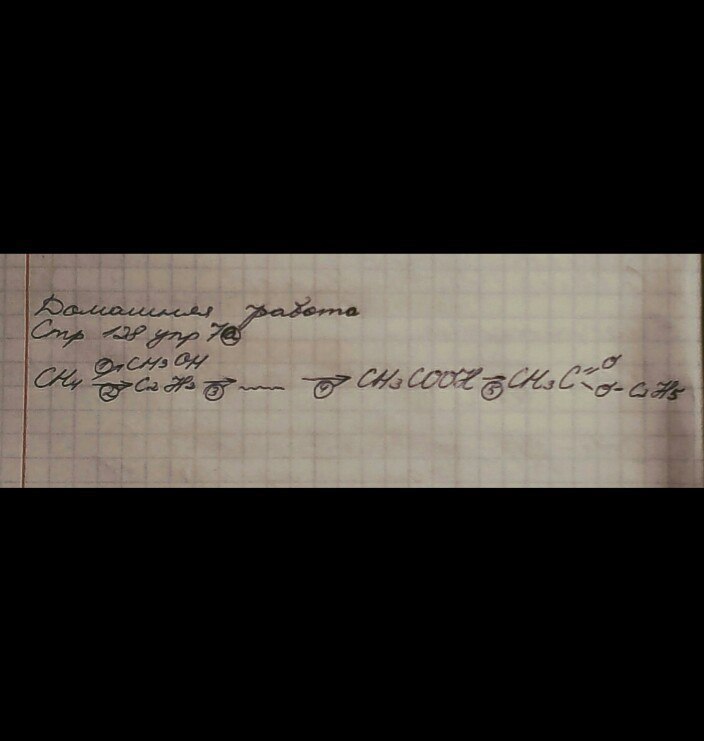 Домашняя работа
Стр 128 упр 7а
① → CH3OH
CH4 ② → C2H2 ③ → ..... ④ → CH3COOH ⑤ → CH3C=O O-C2H5